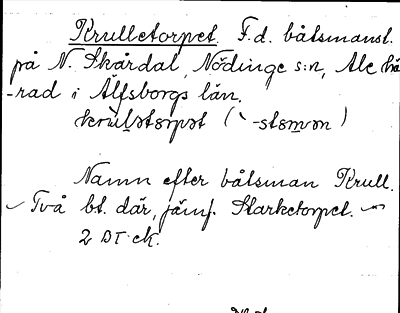 Krulletorpet. F.d. båtsmanst.
på N. Skårdal, Nödinge s:n, Ale hä
-rad i Älfsborgs län.
krùlətorpət (` -stomən)
Namn efter båtsman Krull.
Två bt. där, jämf. Starketorpet.
2 DT ck.